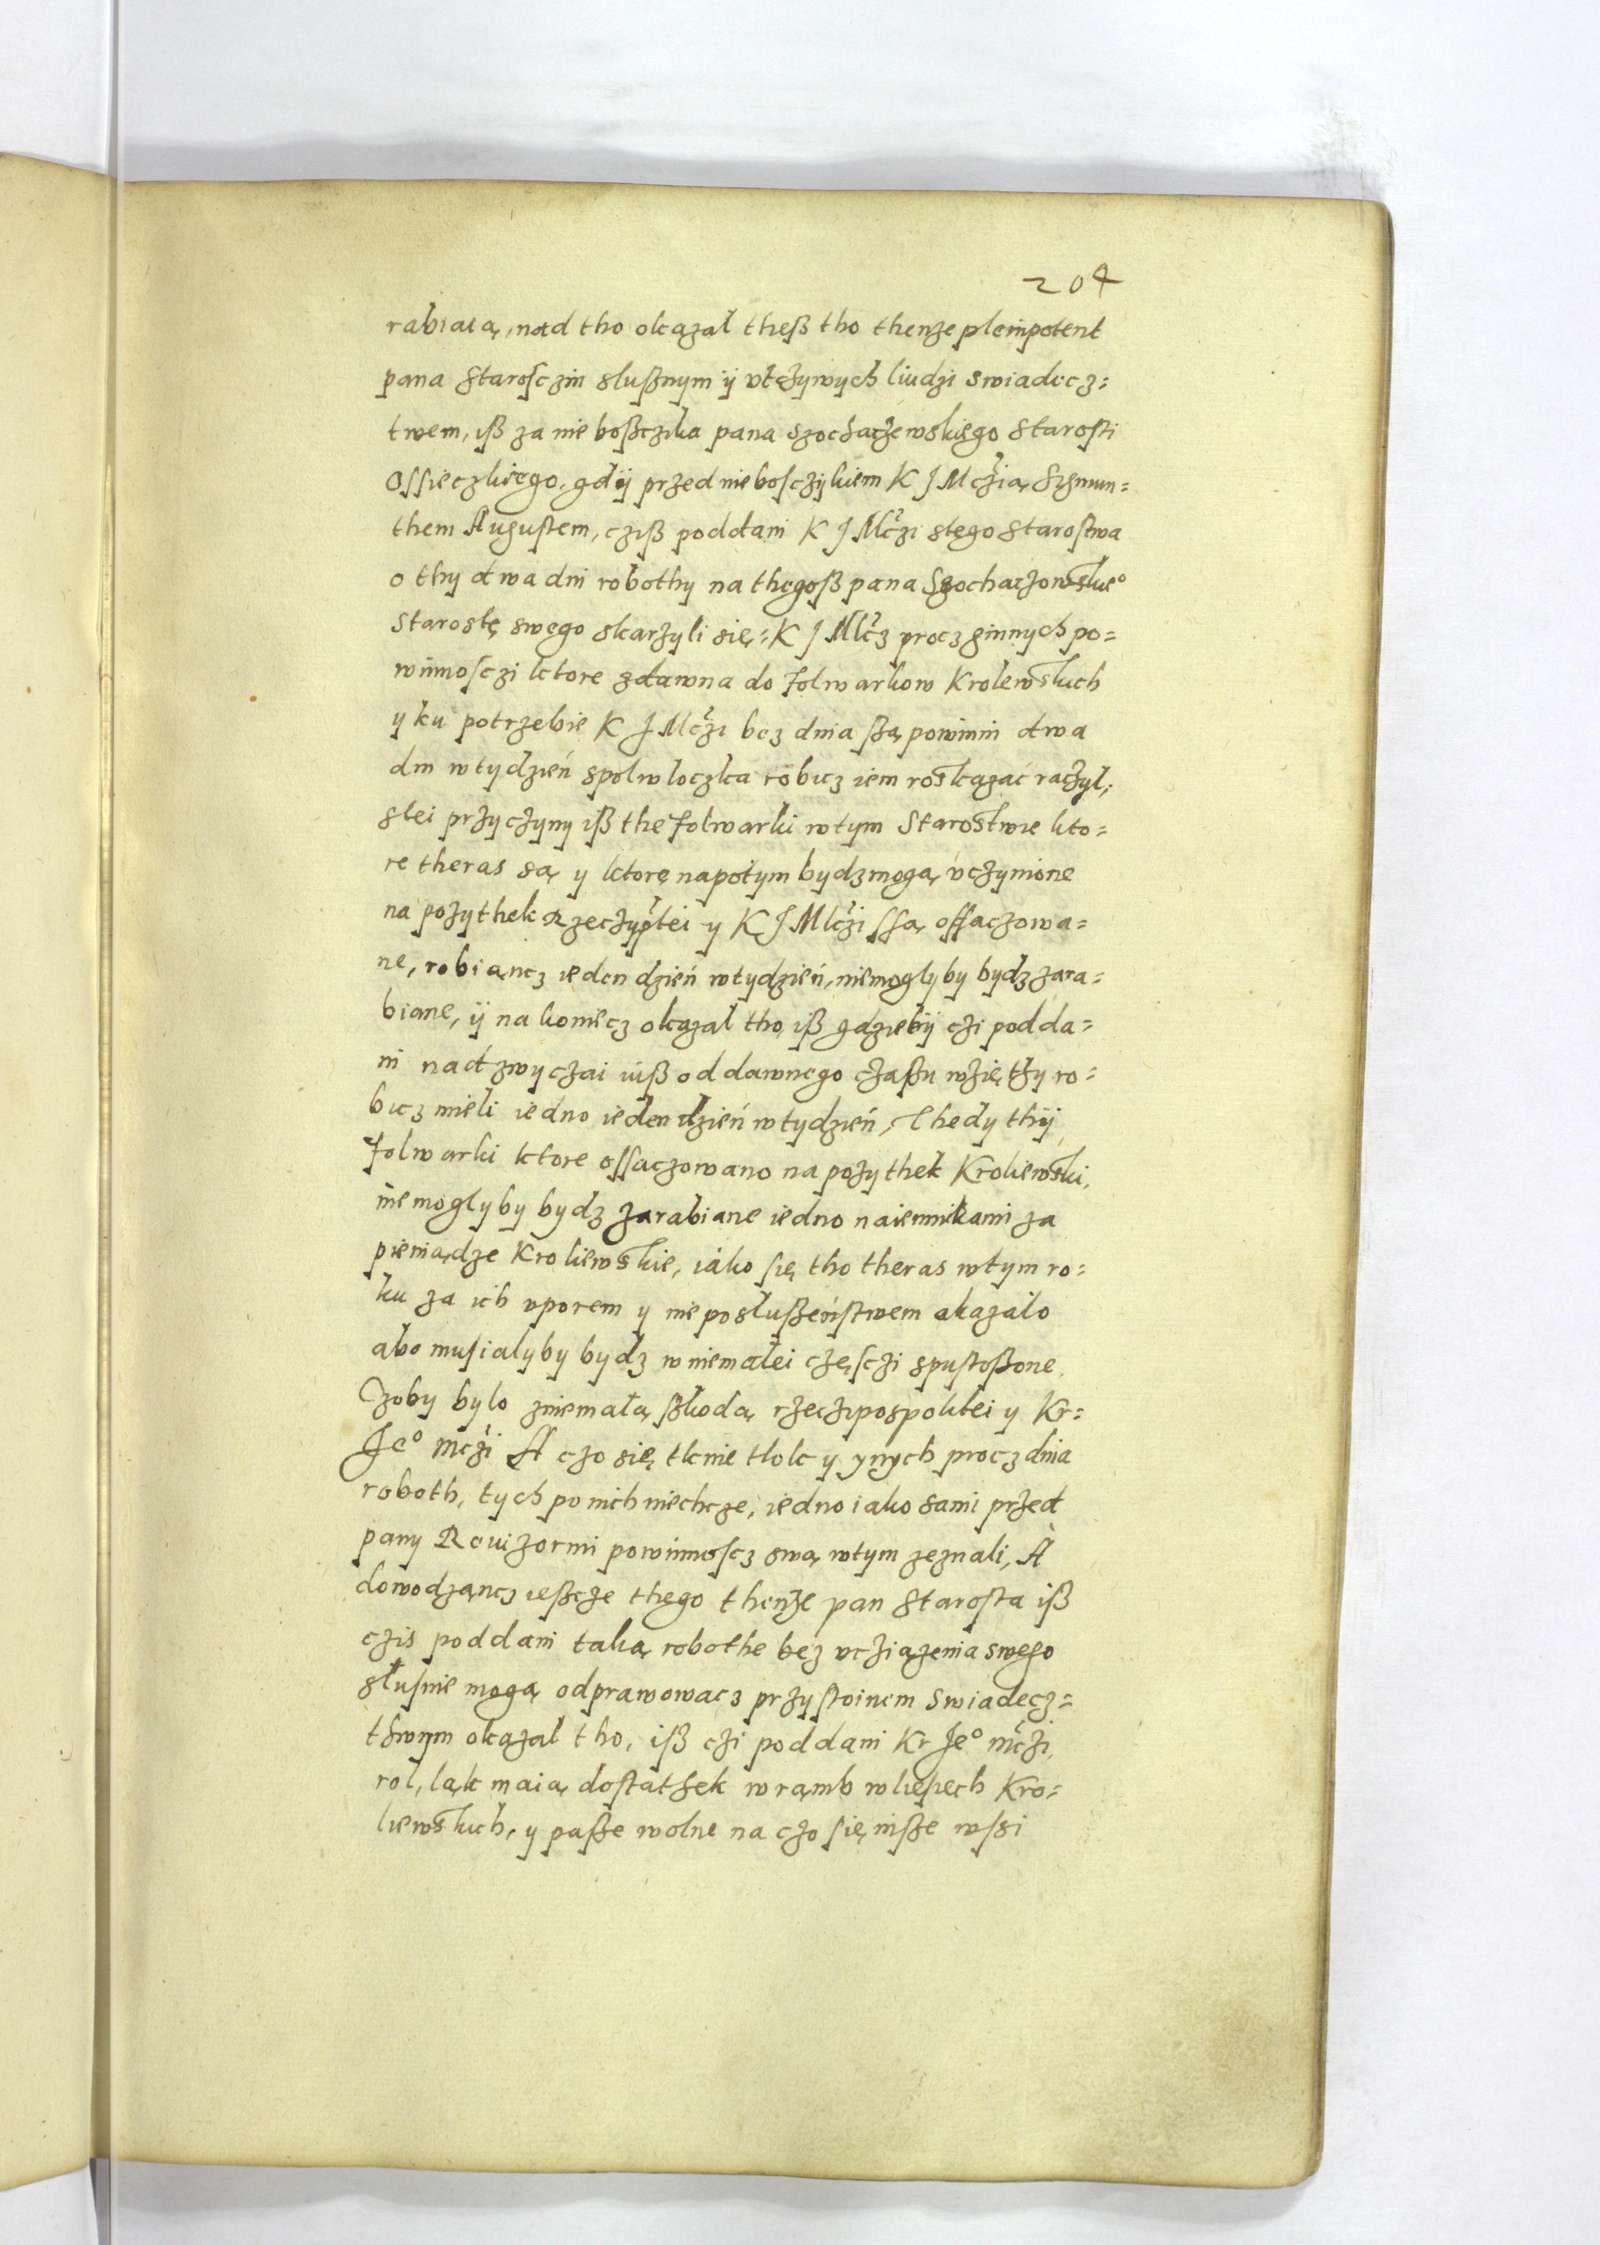 204
rabiaią, nad tho okazal theß tho thenże plenipotent
pana Starosczin slußnym ÿ vtẹżywych liudzi swiadecz=
twem, iß za nieboßczika pana Szochaczewskiego Starosti
Ossieczkiego, gdÿ przed nieboszczykiem K J Mczią Sigmun=
them Augustem, cziß poddani K J Mczi stego Starostwa
o thy dwa dni robothy na thegoß pana Szochaczowskieº
Starostę swego skarżyli się: K J Mcz procz ginnych po=
winnosczi ktore zdawna do folwarkow Krolewskich
y ku potrzebie K J Mczi bez dnia są powinni dwa
dni w tydzień spolwloczka robicz iem roskazać raczyl,
stei przyczyny iß the folwarki w tym Starostwie kto=
re theras są y ktorę napotym bydz mogą vczynione
na pożythek Rzeczyptei y K J Mczi ssą ossaczowa=
ne, robiąncz ieden dzień w tydzień, niemoglyby bydz zara=
biane, ÿ na koniecz okazal tho, iß gdziebÿ czi podda=
ni nad zwyczai iuß od dawnego czaßu wzięthy ro=
bicz mieli iedno ieden dzień w tydzień, Thedy thÿ
folwarki ktore ossaczowano na pożythek Kroliewski,
niemoglyby bydz zarabiane iedno naiemnikami za
pieniądze Kroliewskie, iako się tho theras w tym ro=
ku za ich vporem y nieposlußeństwem okazalo
abo musialyby bydz w niemalei częsczi spustoßone,
Czoby bylo zniemalą ßkodą rzeczipospolitei y Kr=
Jeº mczi A czo się tknie tlok y ynych procz dnia
roboth, tych po nich niechcze, iedno iako sami przed
pany Revizormi powinnoscz swą w tym zeznali, A
dowodząncz ießcze thego thenże pan Starosta iß
czis poddani taką robothe bez vcziążenia swego
slusnie mogą odprawowacz przystoinem swiadecz=
thwym okazal tho, iß czi poddani Kr Jeº mczi,
rol, łąk maią dostathek wrąmb w liesiech Kro=
liewskich, y paße wolne na czo się niße wssi